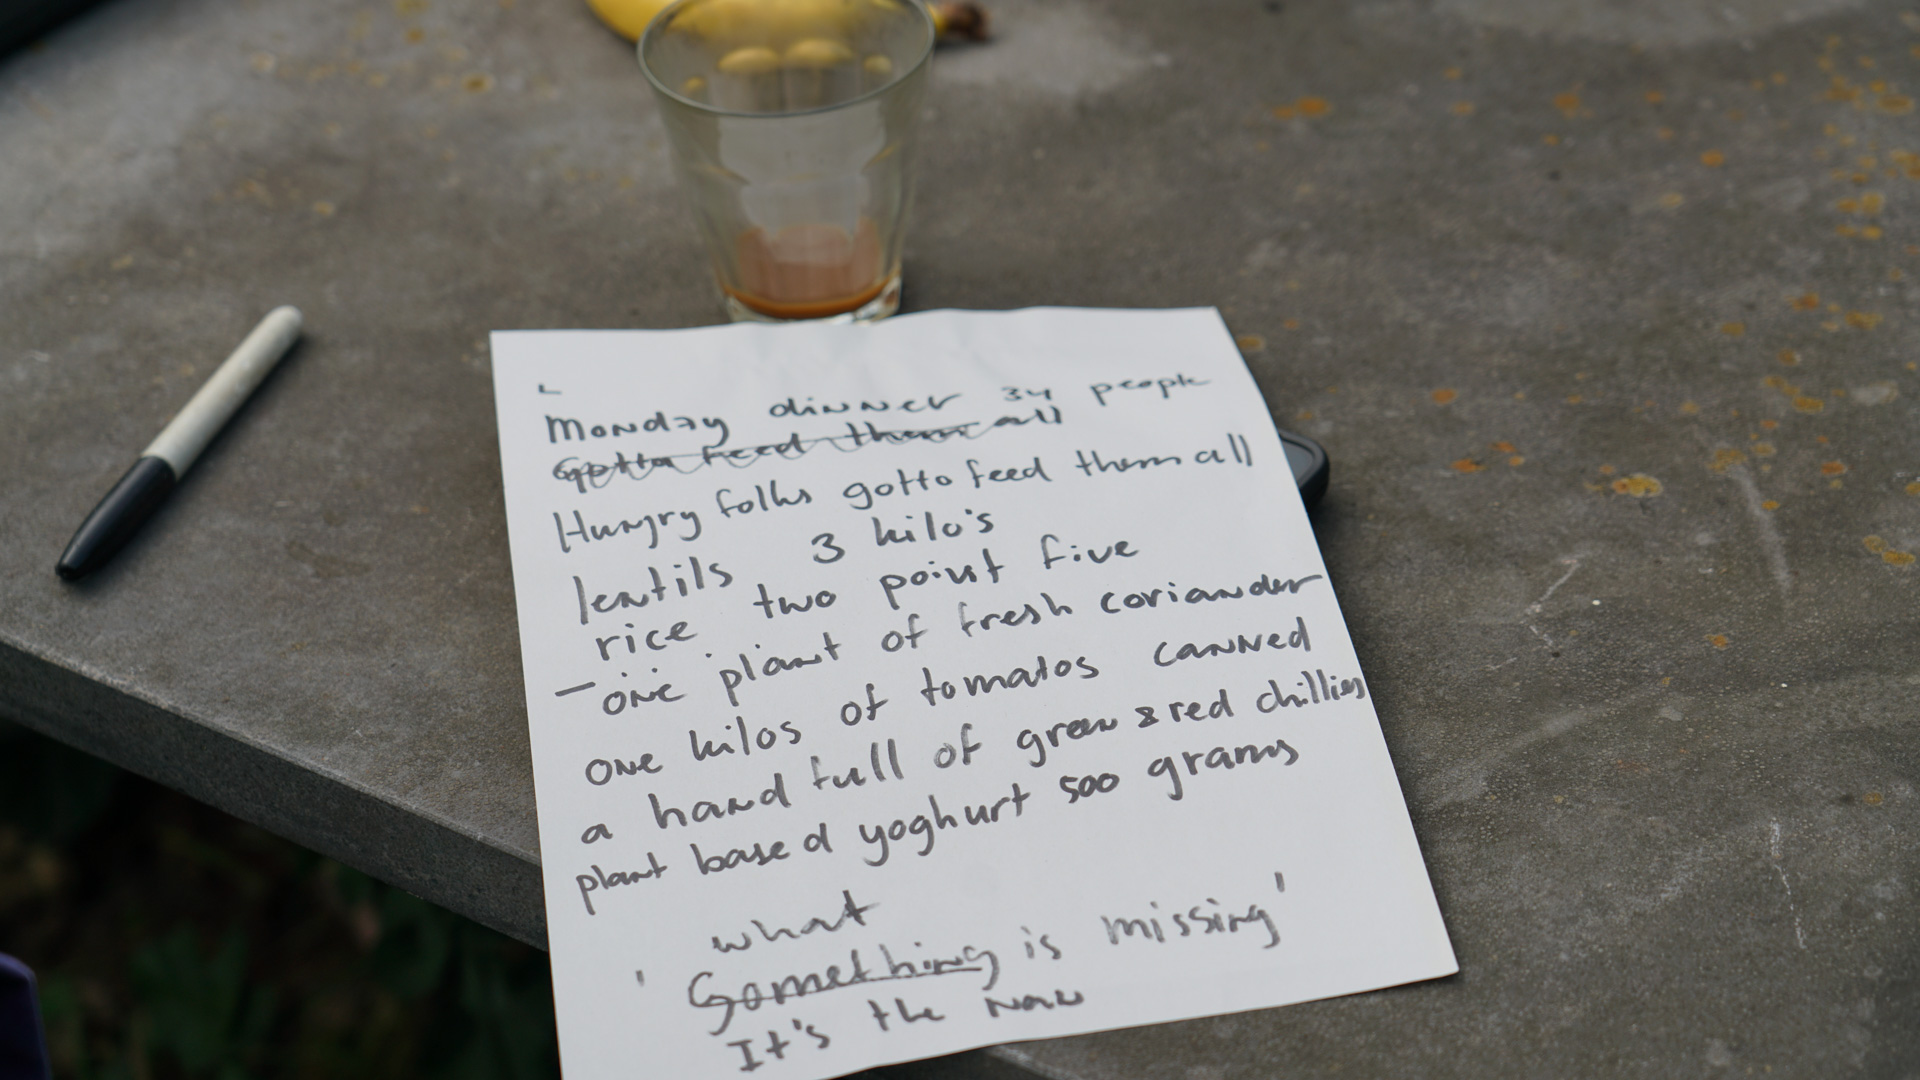 Monday dinner 34 people
Gotta feed them all
Hungry folks gotta feed them all
lentils 3 kilo's
rice two point five
- one plant of fresh coriander
one kilos of tomatos canned
a hand full of green & red chillies
plant based yoghurt 500 grams
what
' Something is missing '
It's the